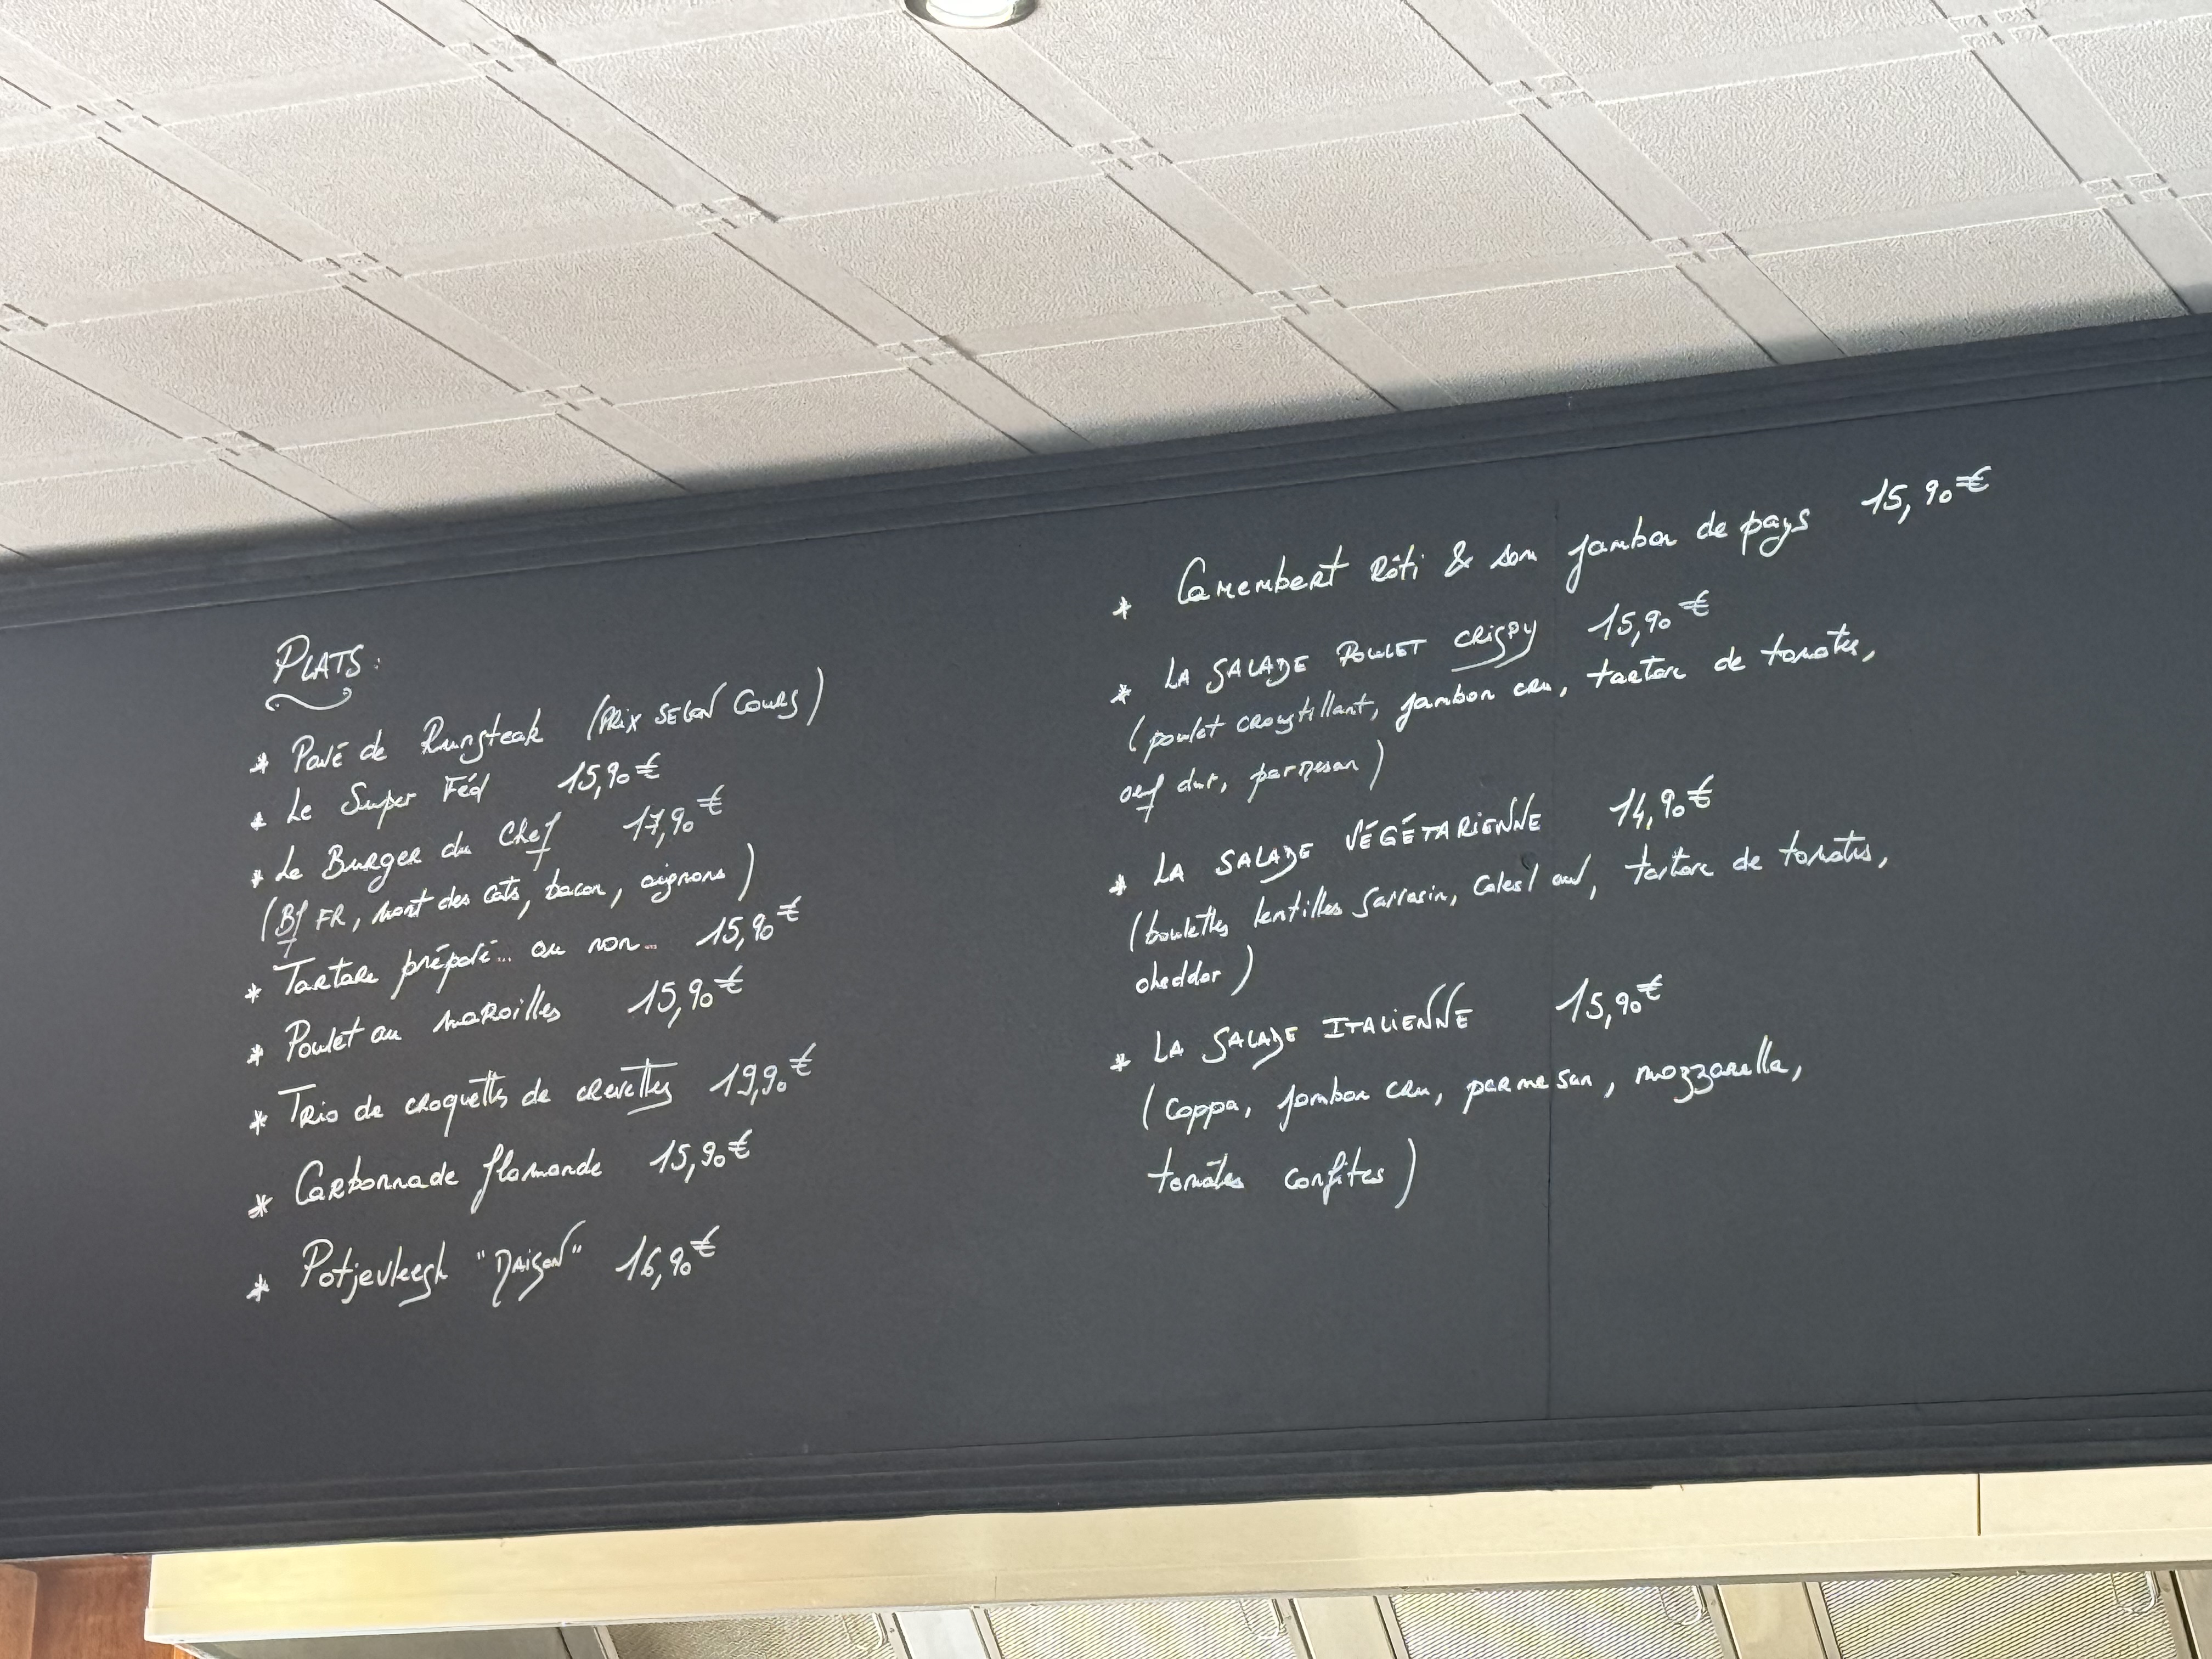 PLATS:
* Pavé de Rumsteak (PRIX SELON COURS)
* Le Super Féd 15,90€
* Le Burger du Chef 17,90€
(Bf FR, mont des cats, bacon, oignons)
* Tartare préparé... ou non... 15,90€
* Poulet au maroilles 15,90€
* Trio de croquettes de crevettes 19,90€
* Carbonnade flamande 15,90€
* Potjevleesh "MAISON" 16,90€
* Camembert Rôti & son jambon de pays 15,90€
* LA SALADE POULET CRISPY 15,90€
(poulet croustillant, jambon cru, tartare de tomates,
oeuf dur, parmesan)
* LA SALADE VÉGÉTARIENNE 14,90€
(boulettes lentilles sarrasin, tartare de tomates,
cheddar)
* LA SALADE ITALIENNE 15,90€
(Coppa, jambon cru, parmesan, mozzarella,
tomates confites)